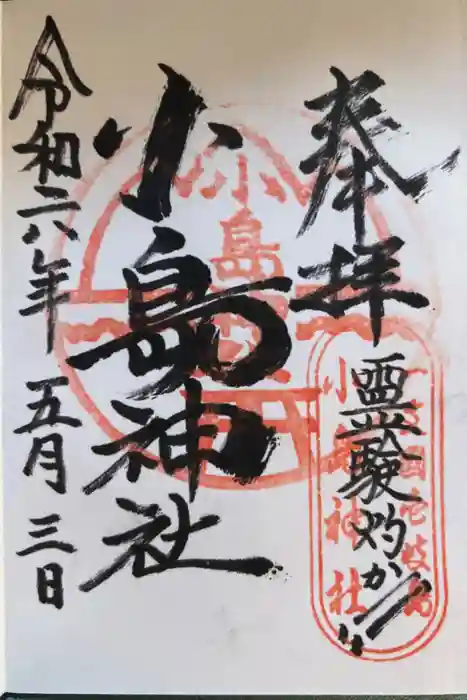 奉拝
霊験灼か
小島神社
令和六年 五月三日
小島
壱岐島
小島神社